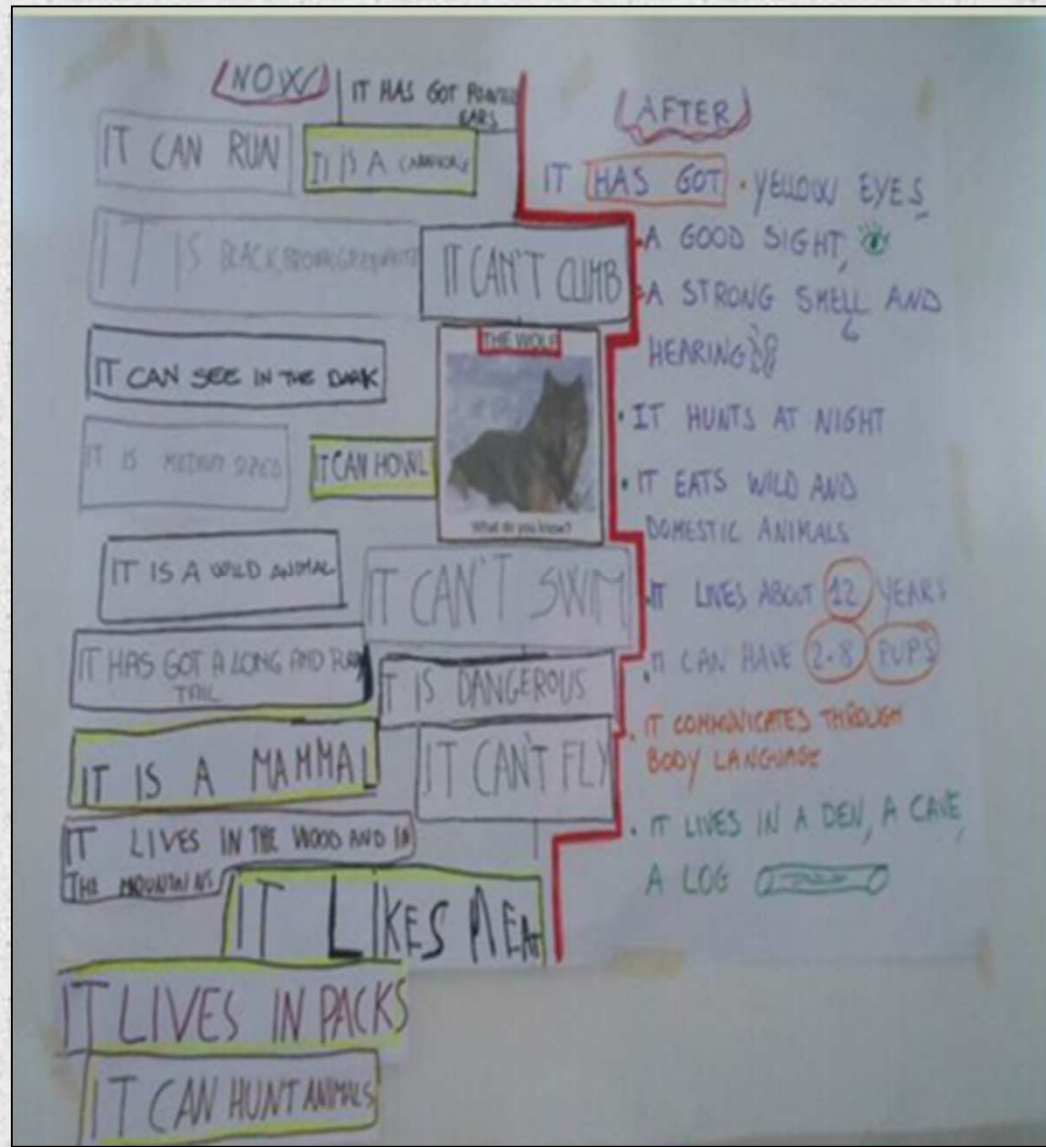 NOW
IT HAS GOT POINTED
EARS
IT CAN RUN
IT IS A CARNIVORE
IT IS BLACK, BROWN, GREY, WHITE
IT CAN'T CLIMB
IT CAN SEE IN THE DARK
THE WOLF
What do you know?
IT IS MEDIUM SIZED
IT CAN HOWL
IT IS A WILD ANIMAL
IT CAN'T SWIM
IT HAS GOT A LONG AND
TAIL
IT IS DANGEROUS
IT IS A MAMMAL
IT CAN'T FLY
IT LIVES IN THE WOOD AND IN
THE MOUNTAINS
IT LIKES MEAT
IT LIVES IN PACKS
IT CAN HUNT ANIMALS
AFTER
IT HAS GOT • YELLOW EYES,
• A GOOD SIGHT,
• A STRONG SMELL AND
HEARING
• IT HUNTS AT NIGHT
• IT EATS WILD AND
DOMESTIC ANIMALS
• IT LIVES ABOUT 12 YEARS
• IT CAN HAVE 2-8 PUPS
• IT COMMUNICATES THROUGH
BODY LANGUAGE
• IT LIVES IN A DEN, A CAVE,
A LOG